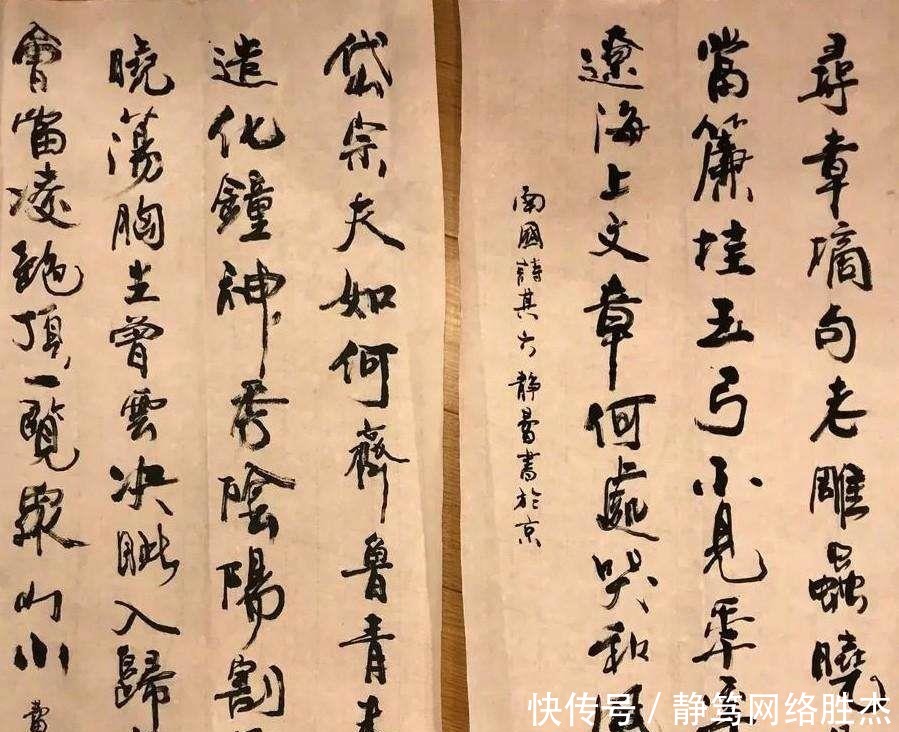 尋章摘句老雕蟲曉
當簾挂玉弓不見年年
遼海上文章何處哭秋風
南國詩其六 靜書於京
岱宗夫如何齊魯青未
造化鐘神秀陰陽割
曉蕩胸生曾雲決眦入歸
會當凌絕頂一覽眾山小
快传号 / 静笃网络胜杰